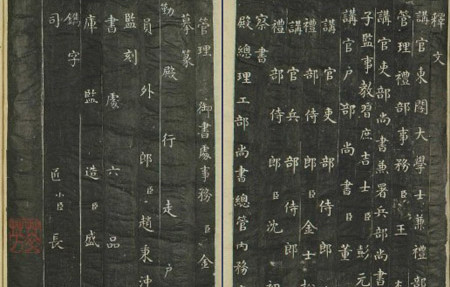 釋文
講官東閣大學士兼禮部
管理禮部事務臣王
講官吏部尚書兼署兵部尚書
子監事教習庶吉士臣彭元
講官戶部尚書臣董
講官吏部侍郎
禮部侍郎臣金士松
講官兵部侍郎
禮部侍郎臣沈初
察書
殿總理工部尚書總管內務
管理 御書處事務臣金
摹篆
勤殿行走戶
員外郎臣趙秉沖
監刻
書處六品
庫監造臣盛
鐫字
司匠小臣長